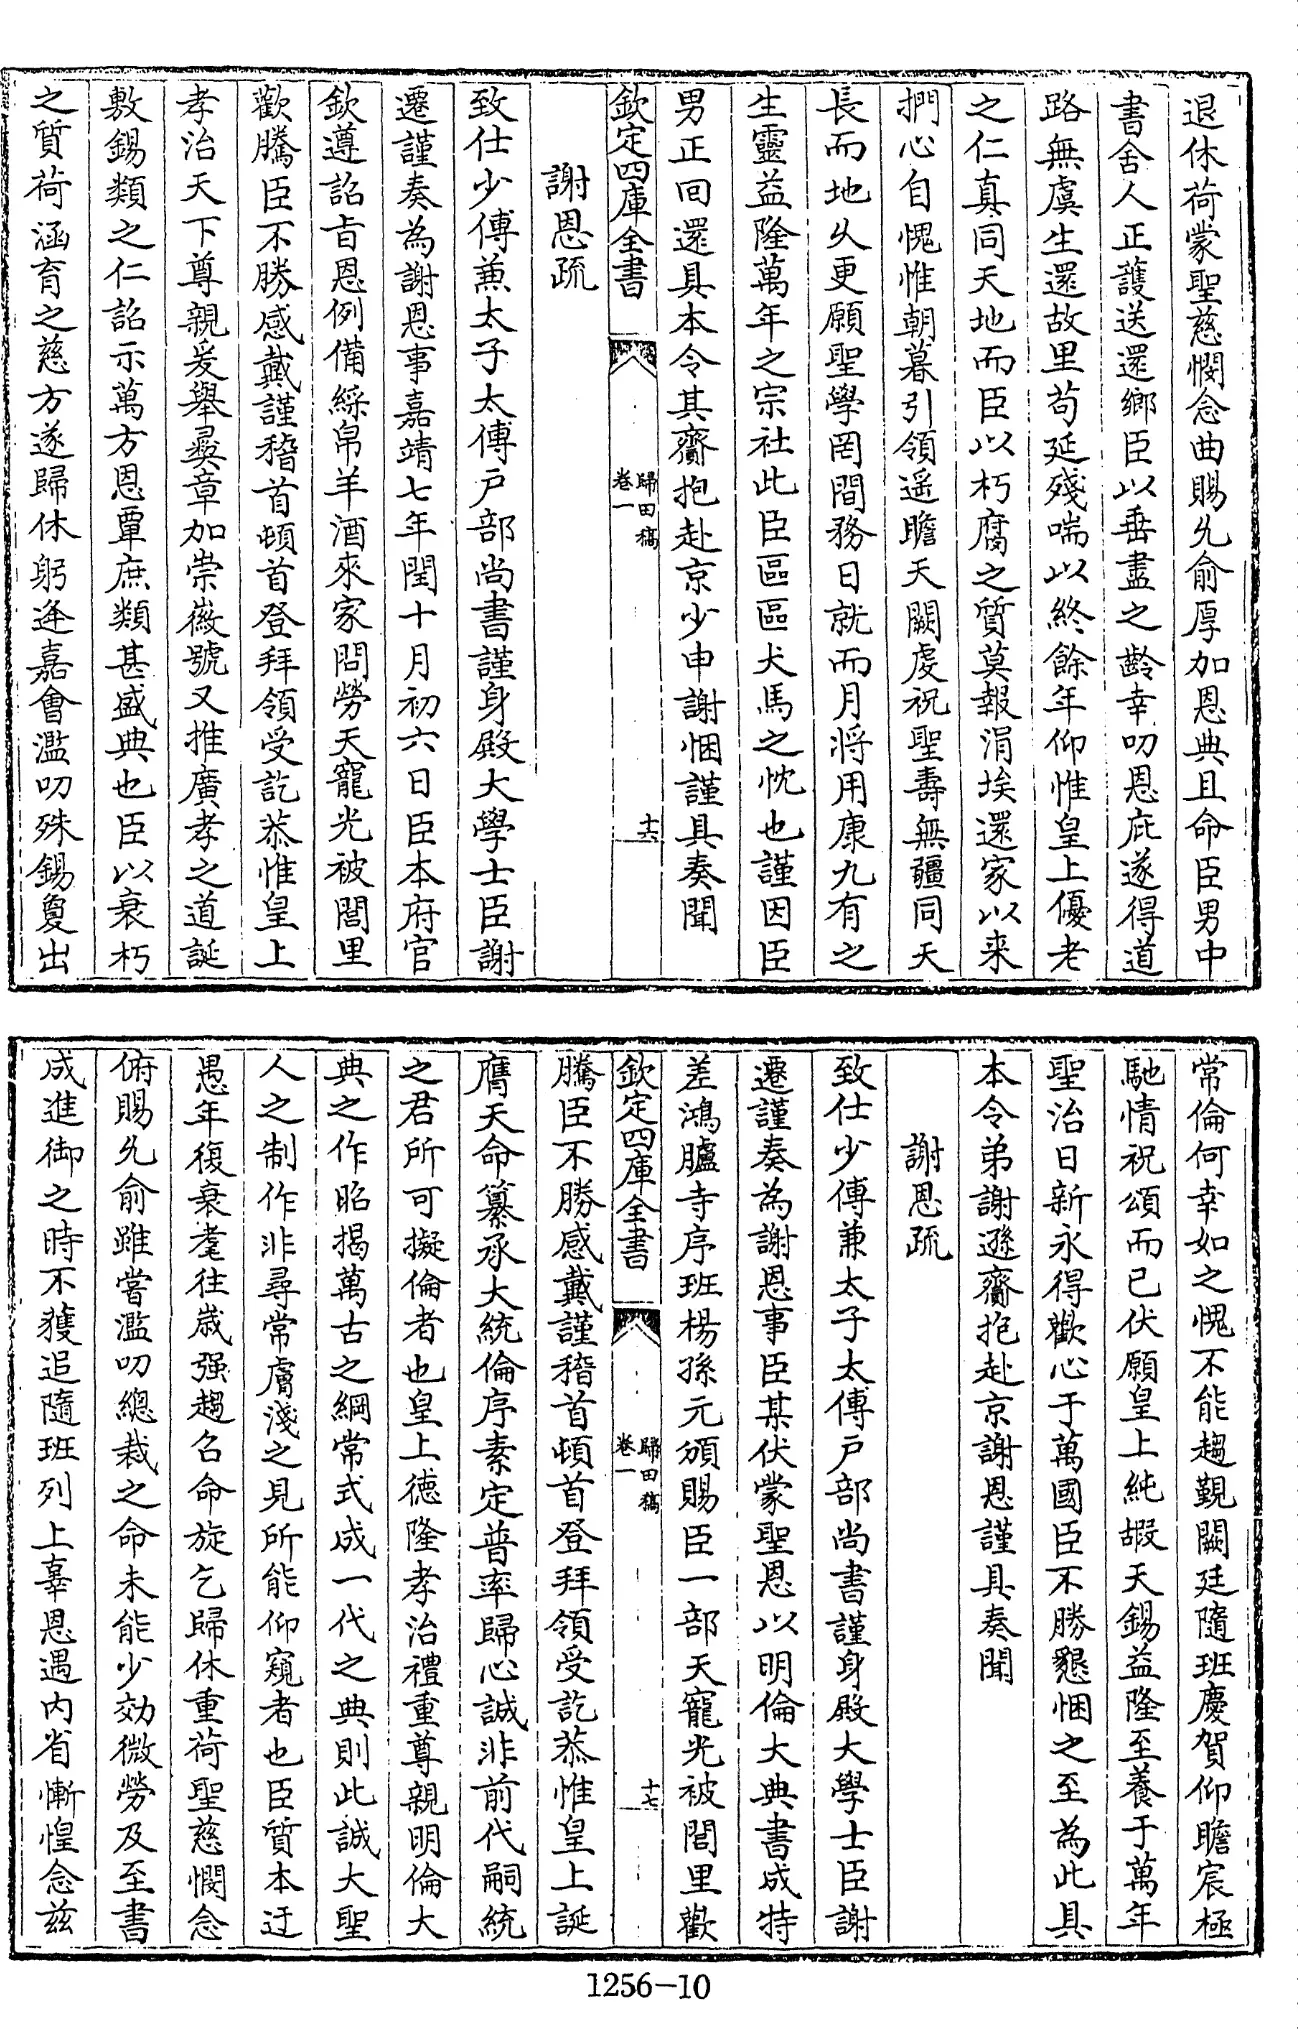 退休荷蒙聖慈憫念曲賜允俞厚加恩典且命臣男中
書舍人正護送還鄉臣以垂盡之齡幸叨恩庇遂得道
路無虞生還故里苟延殘喘以終餘年仰惟皇上優老
之仁真同天地而臣以朽腐之質莫報涓埃還家以来
捫心自愧惟朝暮引領遥瞻天闕虔祝聖壽無疆同天
長而地久更願聖學罔間務日就而月將用康九有之
生靈益隆萬年之宗社此臣區區犬馬之忱也謹因臣
男正回還具本令其齎抱赴京少申謝悃謹具奏聞
欽定四庫全書
歸田稿
卷一
十六
謝恩疏
致仕少傅兼太子太傅户部尚書謹身殿大學士臣謝
遷謹奏為謝恩事嘉靖七年閏十月初六日臣本府官
欽遵詔旨恩例備綵帛羊酒來家問勞天寵光被閭里
歡騰臣不勝感戴謹稽首頓首登拜領受訖恭惟皇上
孝治天下尊親爰舉彛章加崇徽號又推廣孝之道誕
敷錫類之仁詔示萬方恩覃庶類甚盛典也臣以衰朽
之質荷涵育之慈方遂歸休躬逢嘉會濫叨殊錫敻出
常倫何幸如之愧不能趨覲闕廷隨班慶賀仰瞻宸極
馳情祝頌而已伏願皇上純嘏天錫益隆至養于萬年
聖治日新永得歡心于萬國臣不勝懇悃之至為此具
本令弟謝遜齎抱赴京謝恩謹具奏聞
謝恩疏
致仕少傅兼太子太傅户部尚書謹身殿大學士臣謝
遷謹奏為謝恩事臣某伏蒙聖恩以明倫大典書成特
差鴻臚寺序班楊孫元頒賜臣一部天寵光被閭里歡
欽定四庫全書
歸田稿
卷一
十七
騰臣不勝感戴謹稽首頓首登拜領受訖恭惟皇上誕
膺天命纂承大統倫序素定普率歸心誠非前代嗣統
之君所可擬倫者也皇上德隆孝治禮重尊親明倫大
典之作昭揭萬古之綱常式成一代之典則此誠大聖
人之制作非尋常膚淺之見所能仰窺者也臣質本迂
愚年復衰耄往歲强趨召命旋乞歸休重荷聖慈憫念
俯賜允俞雖嘗濫叨總裁之命未能少効微勞及至書
成進御之時不獲追隨班列上辜恩遇内省慚惶念兹
1256-10